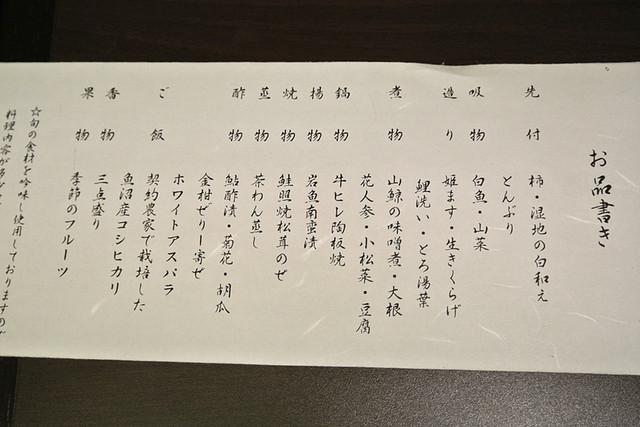 お品書き
先付 柿・湿地の白和え
とんぶり
吸物 白魚・山菜
造り 姫ます・生きくらげ
鯉洗い・とろ湯葉
煮物 山鯨の味噌煮・大根
花人参・小松菜・豆腐
鍋物 牛ヒレ陶板焼
揚物 岩魚南蛮漬
焼物 鮭照焼松茸のせ
蒸物 茶わん蒸し
酢物 鮎酢漬・菊花・胡瓜
金柑ぜリー寄せ
ホワイトアスパラ
ご飯 契約農家で栽培した
魚沼産コシヒカリ
香物 三点盛り
果物 季節のフルーツ
☆旬の食材を吟味し使用しておりますので
料理内容が